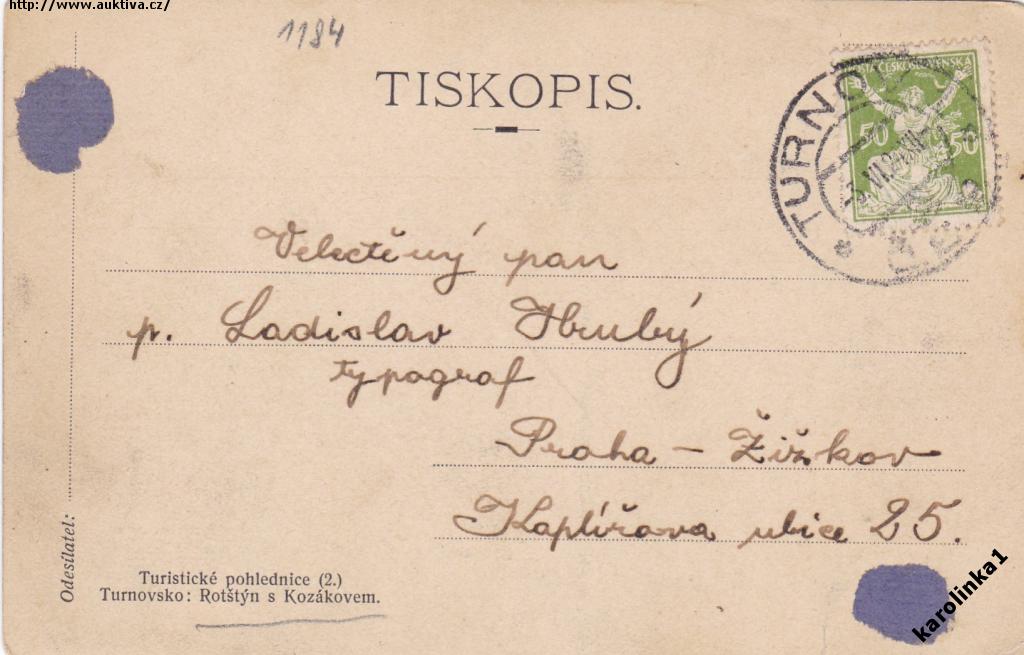 http://www.auktiva.cz/
1184
TISKOPIS.
POŠTA ČESKOSLOVENSKA
50 50
TURNOV
Velectěný pan
p. Ladislav Hrubý
typograf
Praha – Žižkov
Kaplířova ulice 25.
Odesílatel:
Turistické pohlednice (2.)
Turnovsko: Rotštýn s Kozákovem.
karolinka1